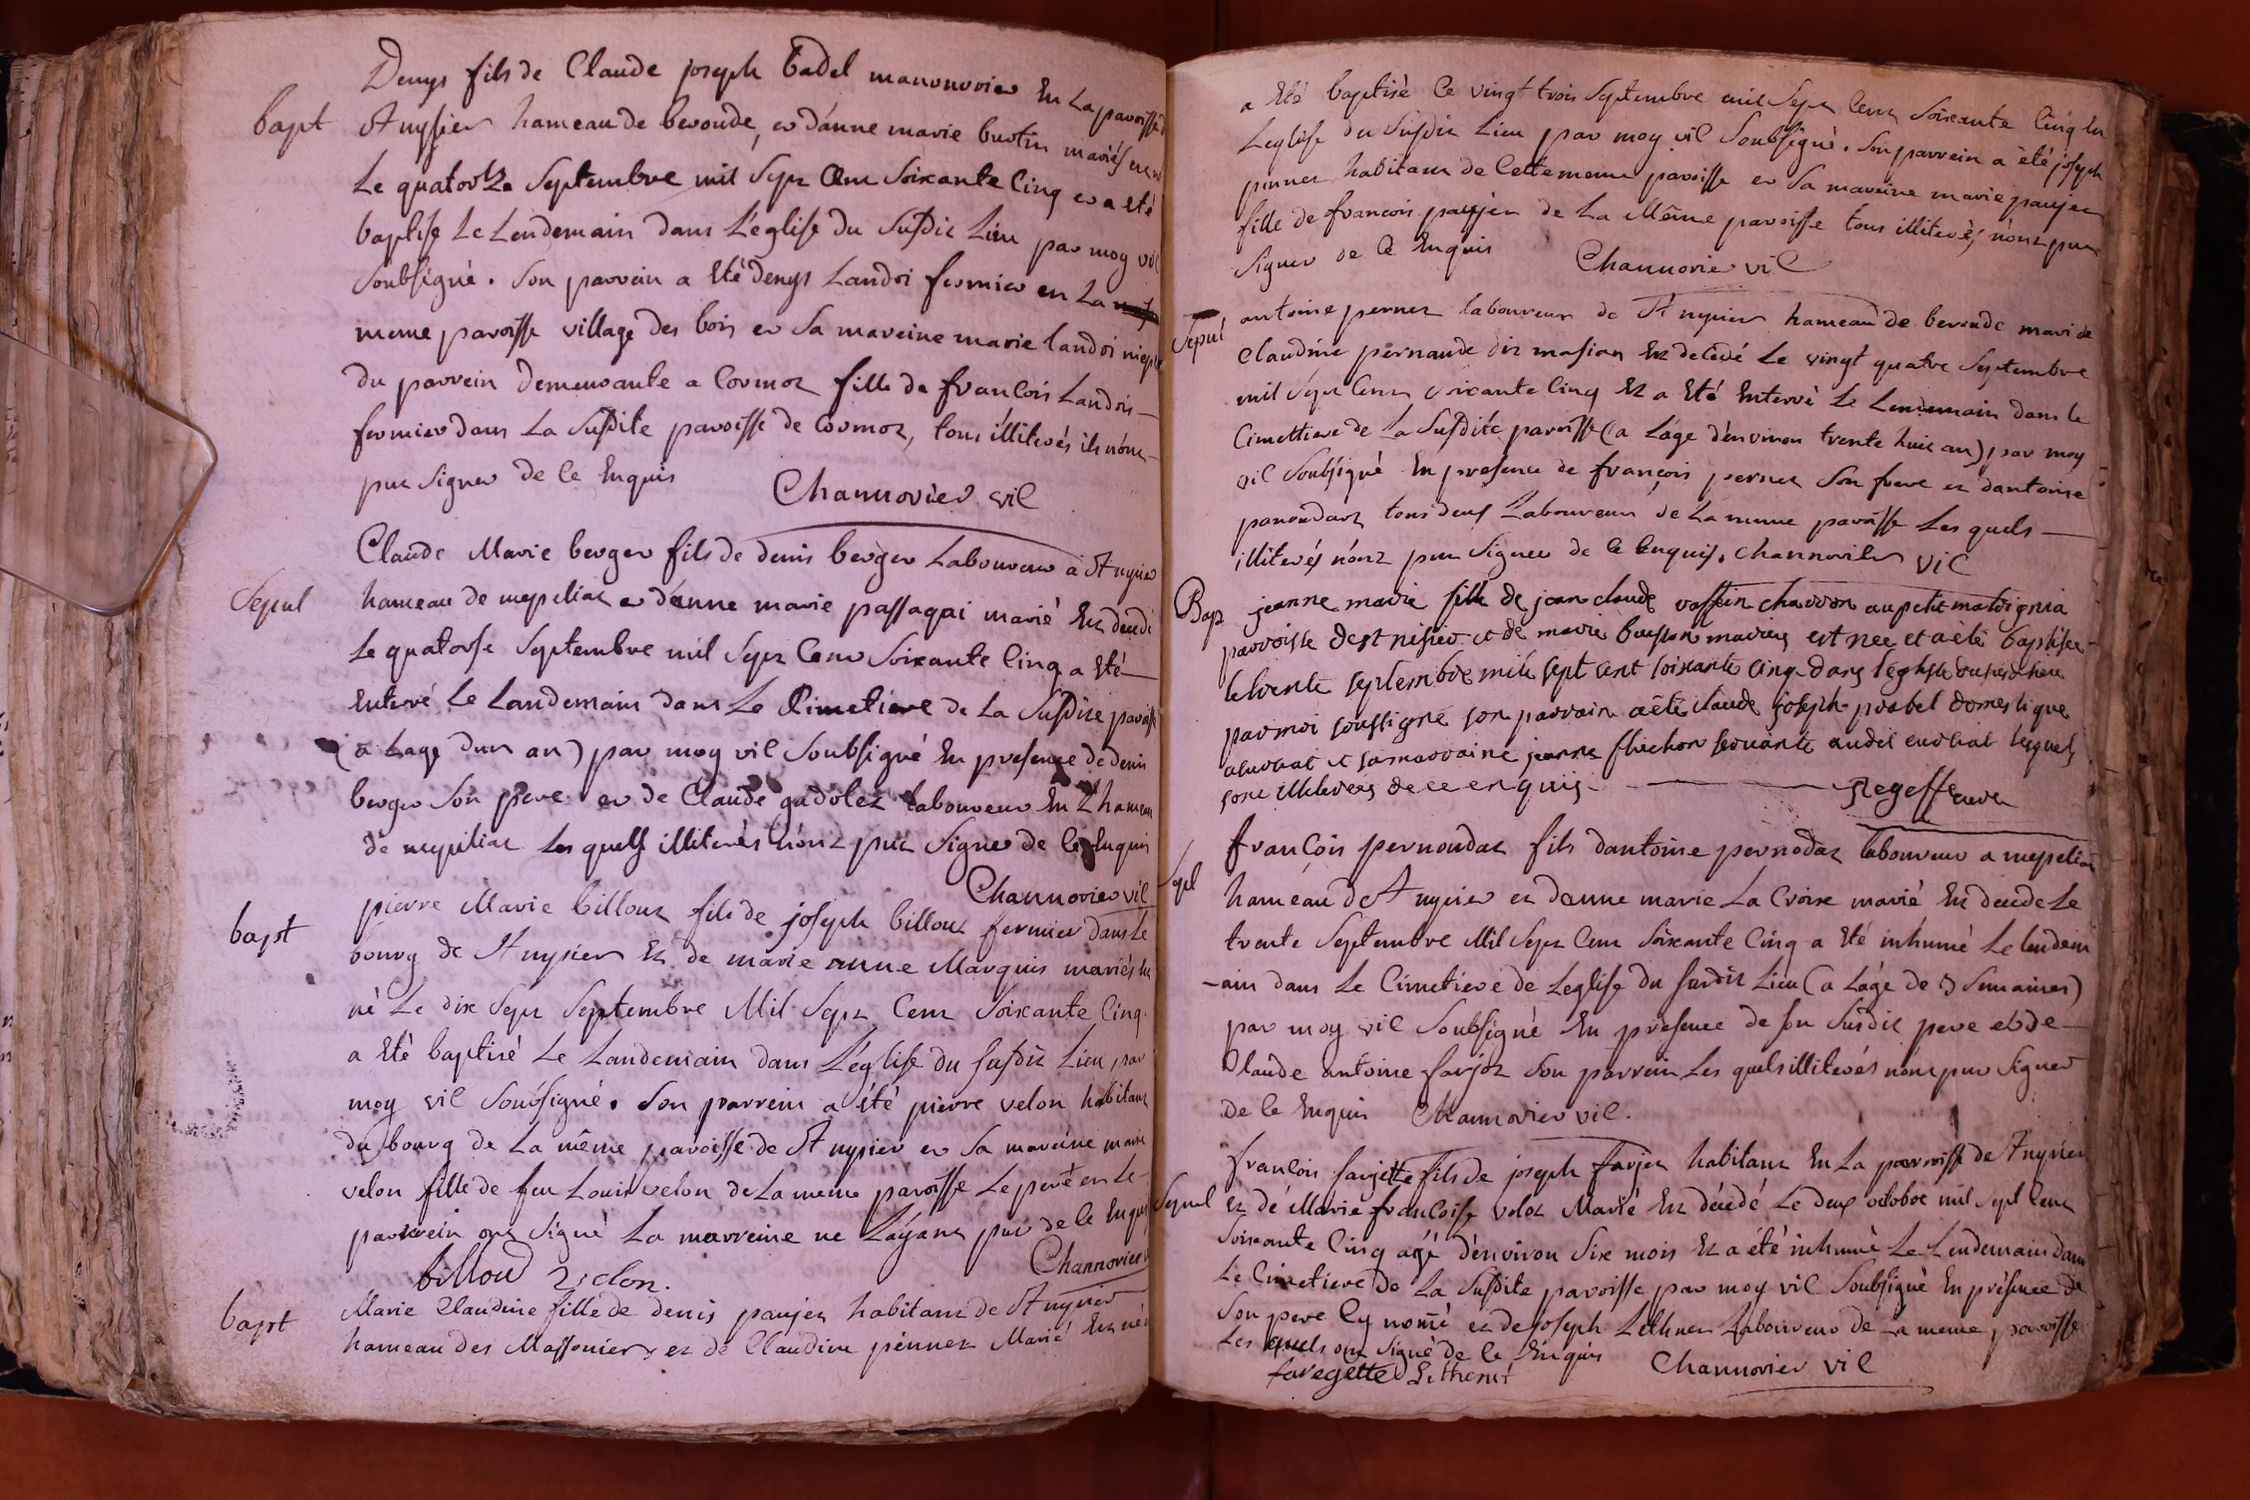 Denys fils de Claude joseph tadel manouvrier En La paroisse de
bapt
St nysier hameau de beronde, et d'anne marie burtin mariés est né
Le quatorze Septembre mil Sept Cent Soixante Cinq et a eté
baptise Le Lendemain dans L'eglise du Susdit Lieu par moy vic
Soubsigné. Son parrein a Eté denys Landoi fermier en La
meme paroisse village des bois et Sa mareine marie landoi niepce
du parrein demeurante a Cormoz fille de francois Landois
fermier dans La Susdite paroisse de Cormoz, tous illiterés ils n'ont
pus Signer de Ce Enquis Channorier vic
Claude Marie berger fils de denis berger Laboureur a St nysier
Sepul
hameau de mepiliat et d'anne marie passaqai marié Est decedé
Le quatorse Septembre mil Sept Cent Soixante Cinq a Eté
Enterré Le Landemain dans Le Cimetiere de La Susdite paroisse
(a Lage dun an) par moy vic Soubsigné En presence de denis
berger Son pere et de Claude gadolet laboureur En L'hameau
de mepiliat Les quels illiterés n'ont pus Signer de Ce Enquis
Channorier vic
pierre Marie billout fils de joseph billout fermier dans Le
bapt
bourg de St nysier Et de marie anne Marquis mariés est
né Le dix Sept Septembre Mil Sept Cent Soixante Cinq
a Eté baptisé Le Landemain dans L'eglise du susdit Lieu par
moy vic Soubsigné. Son parrein a été pierre velon habitant
du bourg de La même paroisse de St nysier et Sa mareine marie
velon fille de feu Louis velon de La meme paroisse Le pere et Le
parrein ont Signé La marreine ne L'ayant pus de Ce Enquis
Channorier
billoud velon.
bapt
Marie Claudine fille de denis paujet habitant de St nysier
hameau des Massoniers et de Claudine pernet Marié Est née
a Eté baptisé Ce vingt trois Septembre mil Sept Cent Soixante Cinq En
L'eglise du Susdit Lieu par moy vic Soubsigné. Son parrein a été joseph
pernet habitant de Cette meme paroisse et Sa mareine marie paujet
fille de francois paujet de La Même paroisse tous illiterés, n'ont pus
Signer de Ce Enquis Channorier vic
Sepul
antoine pernet laboureur de St nysier hameau de beronde mari de
Claudine pernaude dit masion Est decedé Le vingt quatre Septembre
mil Sept Cent soixante Cinq Et a Eté Enterré Le Lendemain dans le
Cimettiere de La Susdite paroisse (a L'age d'environ trente huit an) par moy
vic Soubsigné En presence de françois pernet Son frere et dantoine
panoudat tous deux Laboureur de La meme paroisse Les quels
illiterés n'ont pus Signer de Ce Enquis. Channorier vic
Bap
jeanne marie fille de jean claude charron au petit
parroisse de St nisier et de marie mariés est nee et a été baptisée
le trente septembre mile sept cent soixante cinq dans léglise du susd lieu
par moi soussigné son parrain a été claude joseph probel domestique
et sa marraine jeanne servante audit lesquels
sont illiterés de ce enquis
françois pernoudat fils dantoine pernodat laboureur a mepeliat
Sepl
hameau de St nysier et danne marie La Croix marié Est decedé Le
trente Septembre Mil Sept Cent Soixante Cinq a Eté inhumé Le lendem
-ain dans Le Cimetiere de L'eglise du susdit Lieu (a L'age de 3 Semaines)
par moy vic Soubsigné En presence de son Susdit pere et de
Claude antoine farjot Son parrein Les quels illiterés n'ont pus Signer
de Ce Enquis Channorier vic.
françois farjette fils de joseph farjet habitant En La parroisse de St nysier
Sepul
et de Marie francoise volet Marié Est décédé Le deux octobre mil sept Cent
Soixante Cinq agé d'environ Six mois Et a été inhumé Le Lendemain dans
Le Cimetiere de La Susdite paroisse par moy vic Soubsigné En présence de
Son pere Cy nomé et de joseph Lethenet Laboureur de La meme paroisse
Les quels ont Signé de Ce Enquis Channorier vic
faregette Lethenet